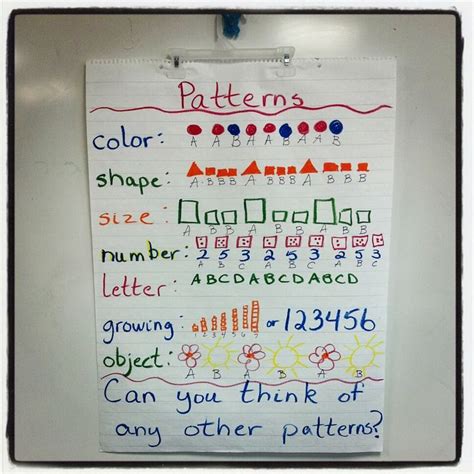 Patterns
color:
A A B A A B A A B
shape:
A B B B A B B B A B B B
size:
A B B A B B A B B
number: 2 5 3 2 5 3 2 5 3
A B C A B C A B C
letter: ABCDABCDABCD
growing: or 123456
object:
A B A B A B
Can you think of
any other patterns?